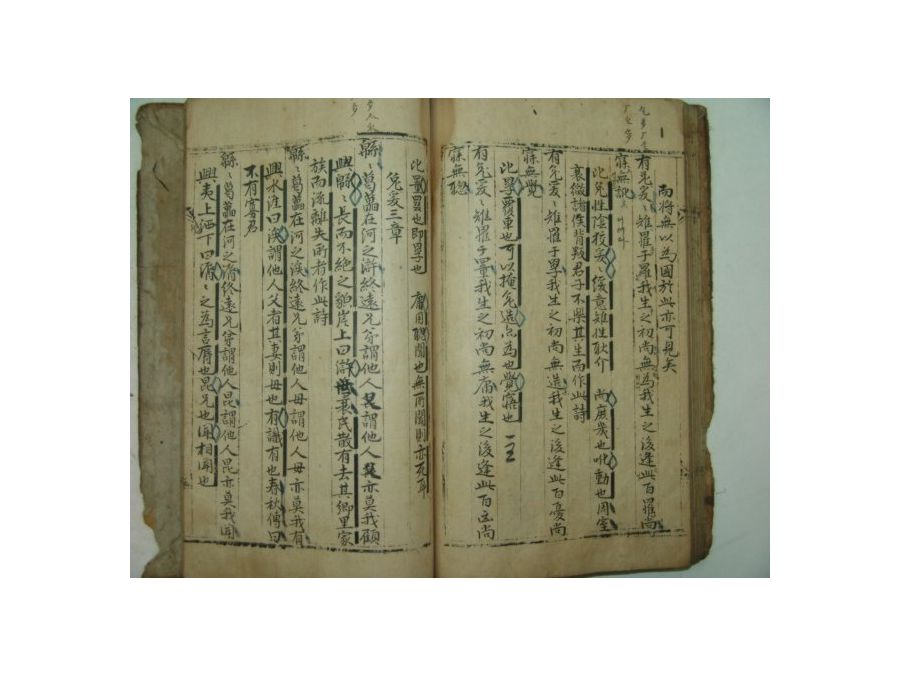 而將無以為國於此亦可見矣
有兔爰〻雉羅于羅我生之初尚無為我生之後逢此百罹尚
寐無吪
比兔性陰狡爰〻緩意雉性耿介 尚庶幾也吪動也周室
衰微諸侯背叛君子不樂其生而作此詩
有兔爰〻雉羅于罦我生之初尚無造我生之後逢此百憂尚
寐無覺
比罦覆車也可以掩兔造亦為也覺寤也 一王
有兔爰〻雉羅于罿我生之初尚無庸我生之後逢此百凶尚
寐無聰
比罿罬也即罦也 庸用聰聞也無所聞則亦死耳
兔爰三章
緜〻葛藟在河之滸終遠兄弟謂他人父謂他人父亦莫我顧
興緜〻長而不絶之貌岸上曰滸 世衰民散有去其鄉里家
族而流離失所者作此詩
緜〻葛藟在河之涘終遠兄弟謂他人母謂他人母亦莫我有
興水涯曰涘謂他人父者其妻則母也有識有也春秋傳曰
不有寡君
緜〻葛藟在河之漘終遠兄弟謂他人昆謂他人昆亦莫我聞
興夷上洒下曰漘〻之為言脣也昆兄也聞相聞也